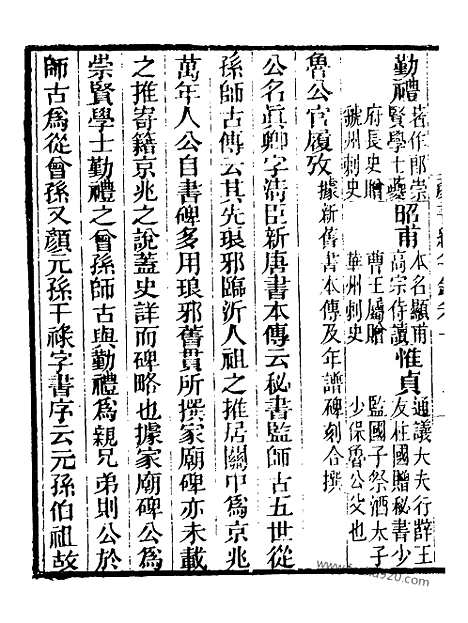 勤禮著作郎崇賢學士夔昭甫本名顯甫高宗侍讀惟貞通議大夫行薛王友柱國贈秘書少
府長史贈虢州刺史　曹王屬贈華州刺史　監國子祭酒太子少保魯公父也
魯公官履攷據新舊書本傳及年譜碑刻合撰
公名眞卿字淸臣新唐書本傳云秘書監師古五世從
孫師古傳云其先琅邪臨沂人祖之推居關中爲京兆
萬年人公自書碑多用琅邪舊貫所撰家廟碑亦未載
之推寄籍京兆之說蓋史詳而碑略也據家廟碑公爲
崇賢學士勤禮之曾孫師古與勤禮爲親兄弟則公於
師古爲從曾孫又顏元孫干祿字書序云元孫伯祖故